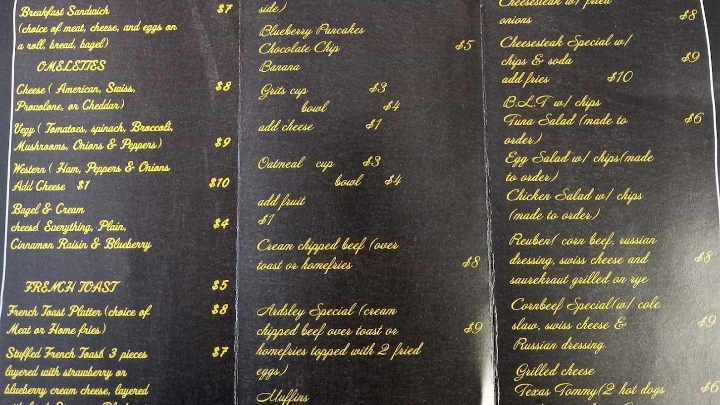 Breakfast Sandwich $7
(choice of meat, cheese, and eggs on
a roll, bread, bagel)
OMELETTES
Cheese ( American, Swiss, $8
Provolone, or Cheddar)
Vegy ( Tomatoes, spinach, Broccoli,
Mushrooms, Onions & Peppers) $9
Western ( Ham, Peppers & Onions
Add Cheese $1 $10
Bagel & Cream
cheese( Everything, Plain, $4
Cinnamon Raisin & Blueberry
FRENCH TOAST $5
French Toast Platter (choice of $8
Meat or Home fries)
Stuffed French Toast( 3 pieces $7
layered with strawberry or
blueberry cream cheese, layered
side)
Blueberry Pancakes
Chocolate Chip $5
Banana
Grits cup $3
bowl $4
add cheese $1
Oatmeal cup $3
bowl $4
add fruit
$1
Cream chipped beef (over
toast or homefries $8
Ardsley Special (cream
chipped beef over toast or $9
homefries topped with 2 fried
eggs)
Muffins
Cheesesteak w/ fried
onions $8
Cheesesteak Special w/
chips & soda $9
add fries $10
B.L.T w/ chips
Tuna Salad (made to $6
order)
Egg Salad w/ chips(made
to order)
Chicken Salad w/ chips
(made to order)
Reuben( corn beef, russian
dressing, swiss cheese and $8
saurekraut grilled on rye
Cornbeef Special(w/ cole
slaw, swiss cheese & $9
Russian dressing
Grilled cheese
Texas Tommy(2 hot dogs $6